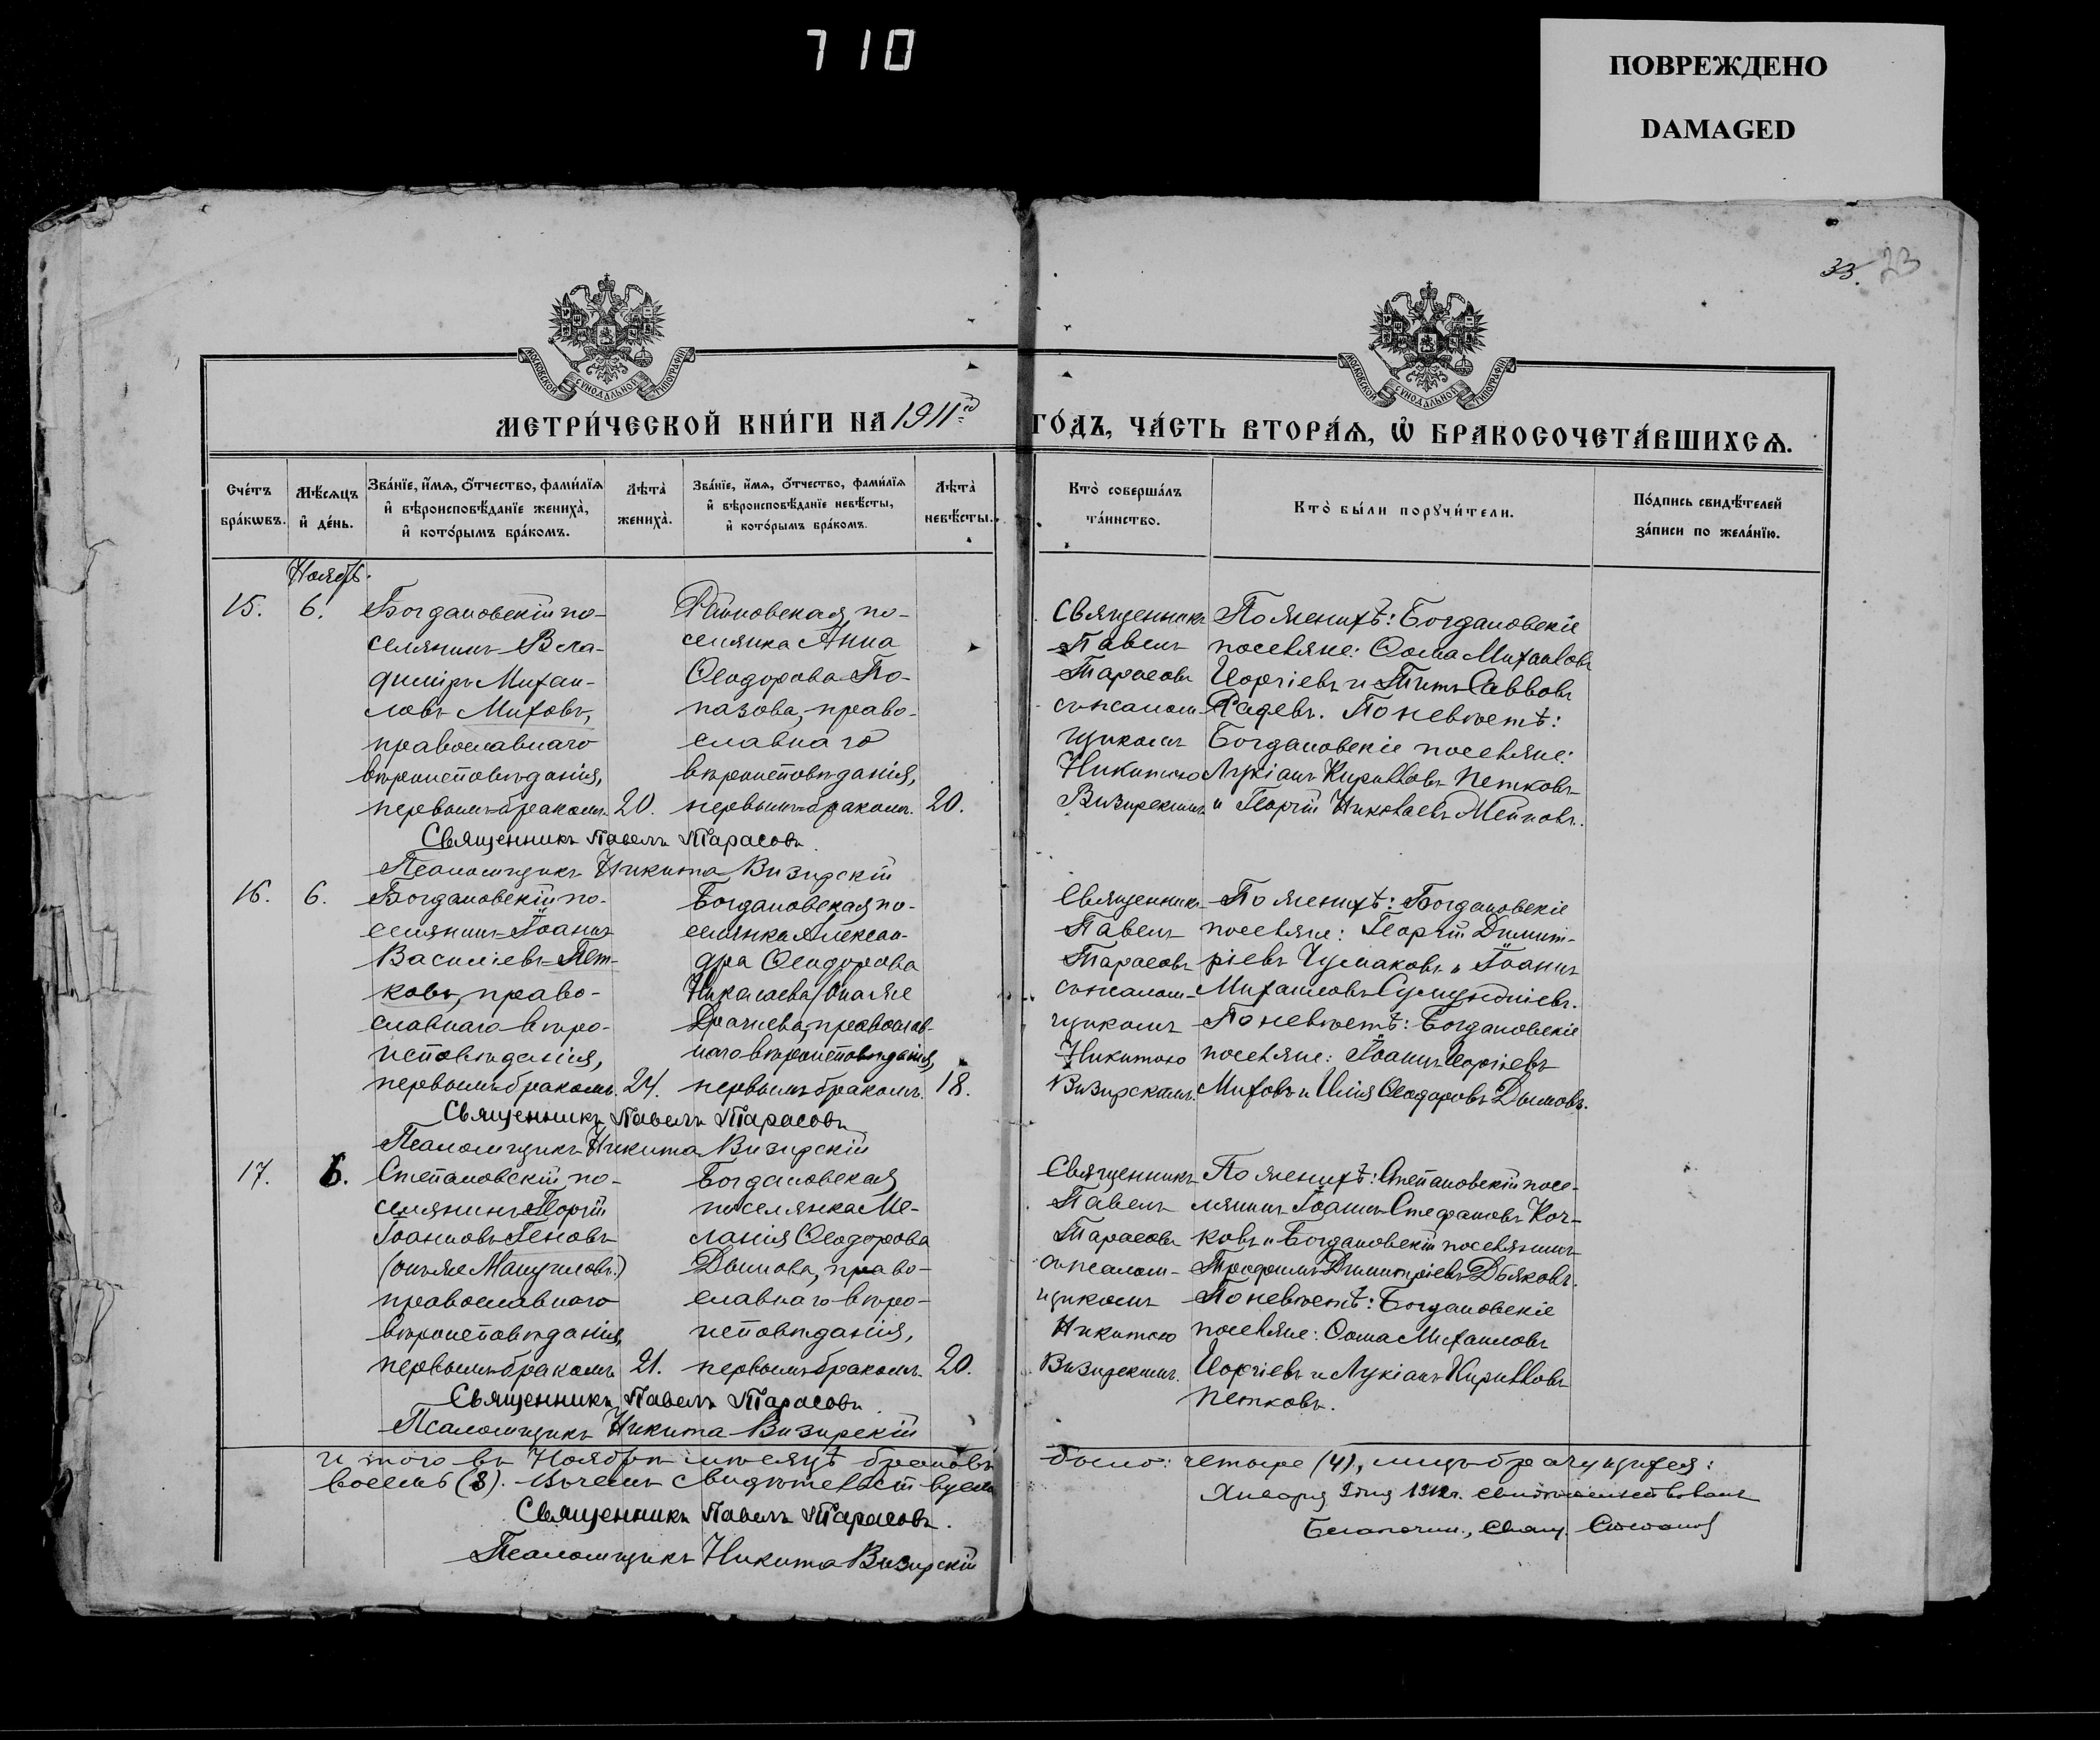 710
ПОВРЕЖДЕНО
DAMAGED
33. 23
МОСКОВСКОЙ СѴНОДАЛЬНОЙ ТИПОГРАФІИ
МОСКОВСКОЙ СѴНОДАЛЬНОЙ ТИПОГРАФІИ
МЕТРИ́ЧЕСКОЙ КНИ́ГИ НА 1911й ГО́ДЪ, ЧА́СТЬ ВТОРА́Ѧ, Ѡ БРАКОСОЧЕТА́ВШИХСѦ.
Сче́тъ
бра́кѡвъ.
Мѣ́сѧцъ
и҆ де́нь.
Зва́нїе, и҆́мѧ, ѻ҆́тчество, фами́лїѧ
и҆ вѣроисповѣ́данїе жениха̀,
и҆ кото́рымъ бра́комъ.
Лѣ́та
жениха̀.
Зва́нїе, и҆́мѧ, ѻ҆́тчество, фами́лїѧ
и҆ вѣроисповѣ́данїе невѣ́сты,
и҆ кото́рымъ бра́комъ.
Лѣ́та
невѣ́сты.
Кто̀ соверша́лъ
та́инство.
Кто̀ бы́ли порꙋчи́тели.
По́дпись свидѣ́телей
за́писи по жела́нїю.
Ноябрь.
15.
6.
Богдановскій по-
селянинъ Вла-
диміръ Михаи-
ловъ Миховъ,
православнаго
вѣроисповѣданія,
первымъ бракомъ.
20.
по-
селянка Анна
Ѳеодорова По-
пазова, право-
славнаго
вѣроисповѣданія,
первымъ бракомъ.
20.
Священникъ
Павелъ
Тарасовъ
съ псалом-
щикомъ
Никитою
Визирскимъ
По женихѣ: Богдановскіе
поселяне: Ѳома Михаиловъ
Іоргіевъ и Титъ Савовъ
Радевъ. По невѣстѣ:
Богдановскіе поселяне:
Лукіанъ Кирилловъ Петковъ
и Георгій Николаевъ
Священникъ Павелъ Тарасовъ.
Псаломщикъ Никита Визирскій
16.
6.
Богдановскій по-
селянинъ Іоаннъ
Василіевъ Пет-
ковъ, право-
славнаго вѣро-
исповѣданія,
первымъ бракомъ.
24.
Богдановская по-
селянка Алексан-
дра Ѳеодорова
Николаева/она же
православ-
наго вѣроисповѣданія,
первымъ бракомъ.
18.
Священникъ
Павелъ
Тарасовъ
съ псалом-
щикомъ
Никитою
Визирскимъ.
По женихѣ: Богдановскіе
поселяне: Георгій Димит-
ріевъ Чумаковъ и Іоаннъ
Михаиловъ
По невѣстѣ: Богдановскіе
поселяне: Іоаннъ Іоргіевъ
Миховъ и Илія Ѳеодоровъ Дымовъ.
Священникъ Павелъ Тарасовъ
Псаломщикъ Никита Визирскій
17.
6.
Степановскій по-
селянинъ Георгій
Іоанновъ Геновъ
(онъ же Мануиловъ)
православнаго
вѣроисповѣданія,
первымъ бракомъ.
21.
Богдановская
поселянка Ме-
ланія Ѳеодорова
Дымова, право-
славнаго вѣро-
исповѣданія,
первымъ бракомъ.
20.
Священникъ
Павелъ
Тарасовъ
съ псалом-
щикомъ
Никитою
Визирскимъ.
По женихѣ: Степановскій посе-
лянинъ Іоаннъ Стефановъ Коч-
ковъ и Богдановскій поселянинъ
Трофимъ Димитріевъ Дьяковъ.
По невѣстѣ: Богдановскіе
поселяне: Ѳома Михаиловъ
Іоргіевъ и Лукіанъ Кирилловъ
Петковъ.
Священникъ Павелъ Тарасовъ.
Псаломщикъ Никита Визирскій
итого въ Ноябрѣ мѣсяцѣ браковъ было: четыре (4), лицъ брачущихся:
восемь (8). въ чемъ свидѣтельствуемъ
Священникъ Павелъ Тарасовъ.
Псаломщикъ Никита Визирскій
Января 1912 г.
Благочин., Свящ.